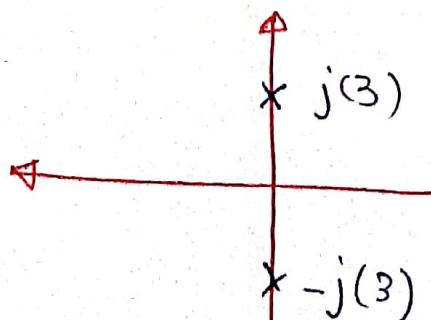 j(3)
-j(3)